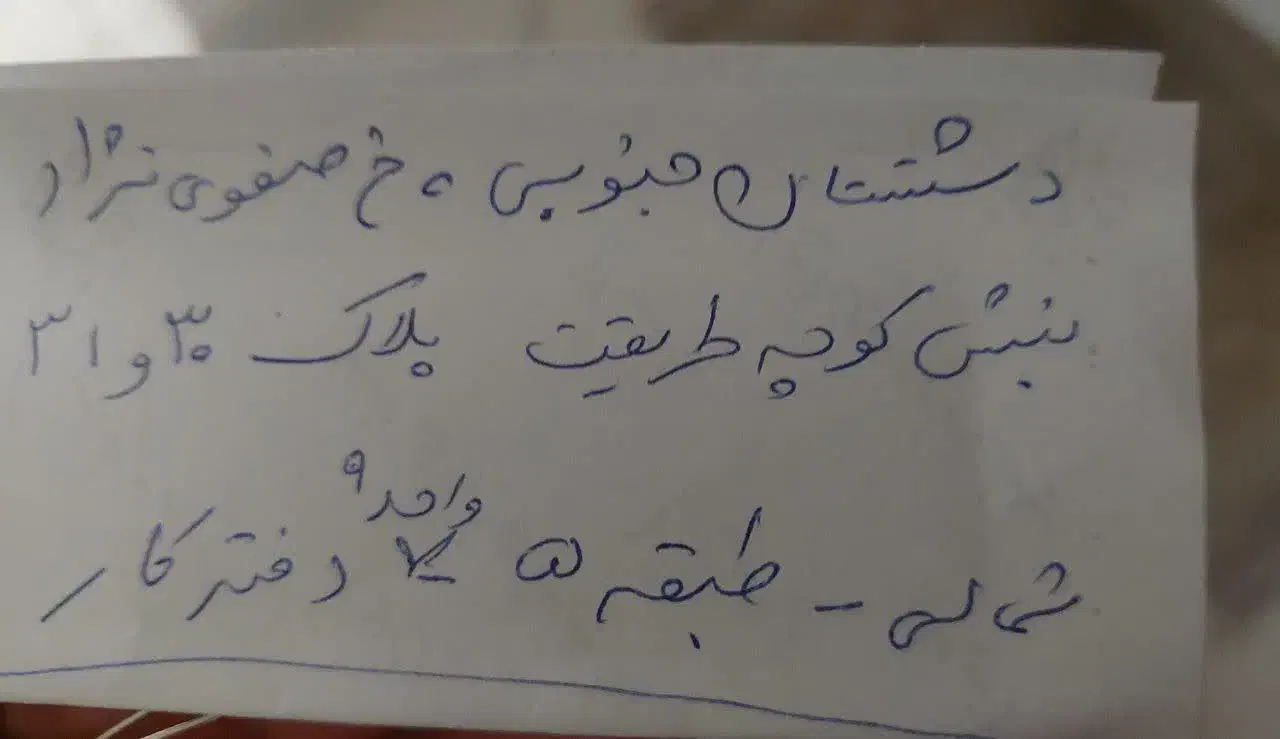 دشتستان جنوبی، خ صفوی نژاد
نبش کوچه طریقت پلاک ۳۰ و ۳۱
شمالی - طبقه ۵ واحد ۹ دفتر کار